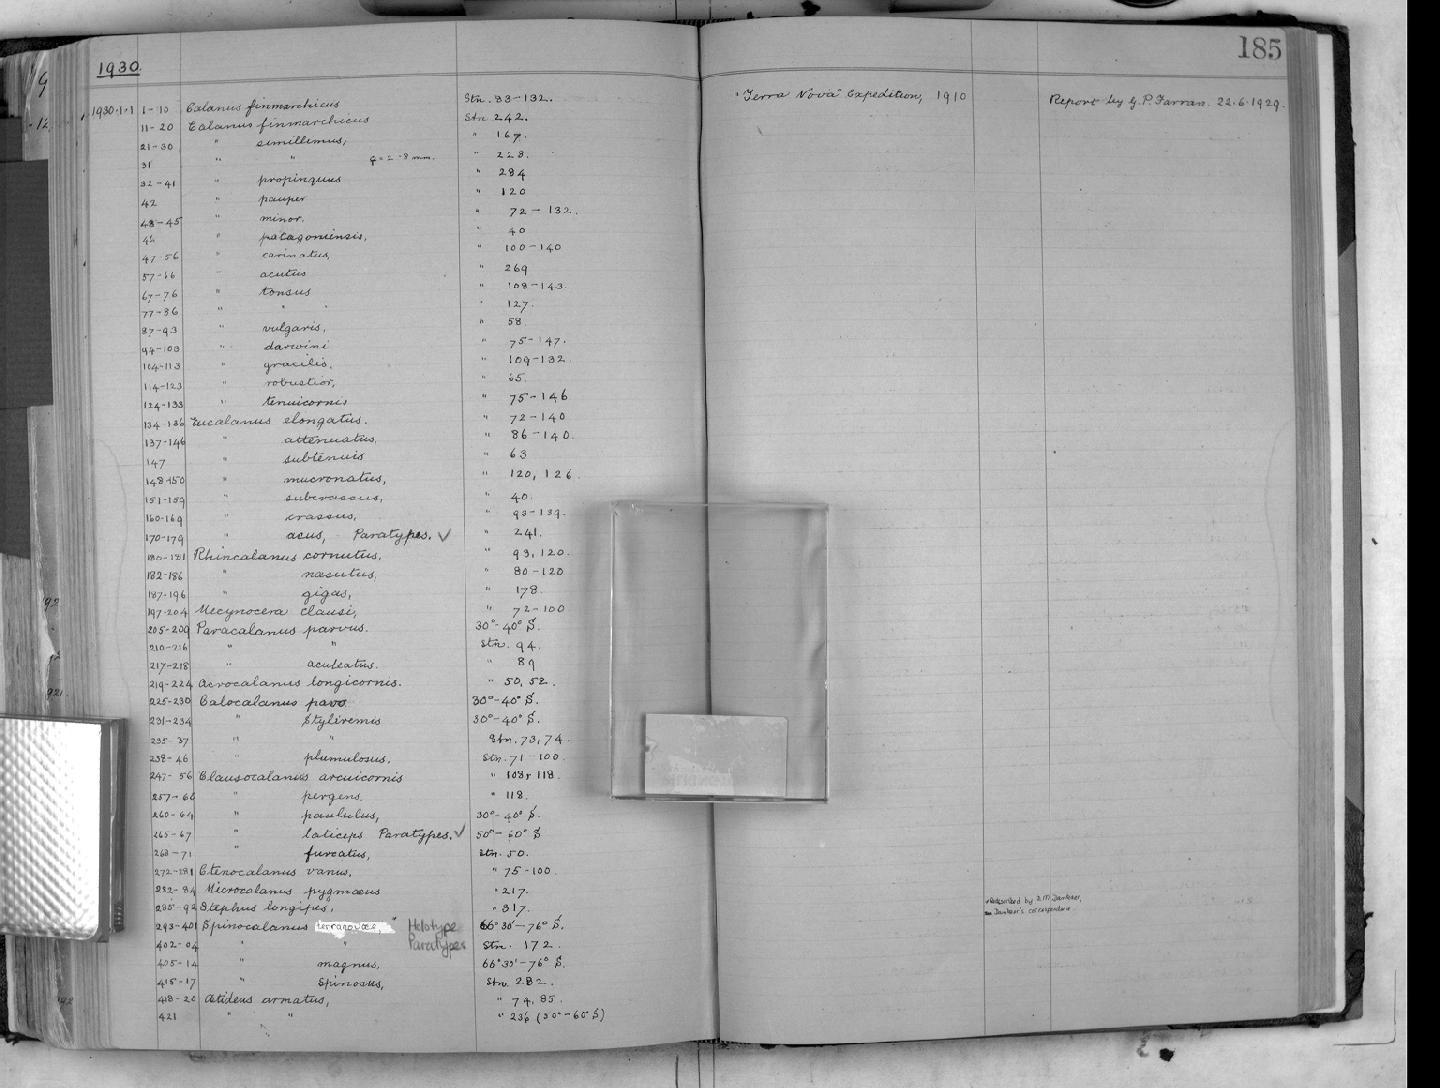 185
1930
1930.1.1 1-10 Calanus finmarchicus Stn. 83-132. "Terra Nova" Expedition, 1910 Report by G.P. Farran. 22.6.1929.
11-20 Calanus finmarchicus Stn. 242.
21-30 " simillimus, " 167.
31 " " " 228.
32-41 " propinquus " 284
42 " pauper " 120
43-45 " minor. " 72-132.
" patagoniensis, " 40
47-56 " carinatus, " 100-140
57-66 " acutus " 269
67-76 " tonsus " 108-143.
77-86 " " " 127.
87-93 " vulgaris, " 58
94-103 " darwini " 75-147.
104-113 " gracilis, " 109-132
114-123 " robustior,
124-133 " tenuicornis " 75-146
134-136 Eucalanus elongatus. " 72-140
137-146 " attenuatus, " 86-140.
147 " subtenuis " 63
148-150 " mucronatus, " 120, 126
151-159 " subcrassus, " 40.
160-169 " crassus, " 93-139.
170-179 " acus, Paratypes. ✓ " 241.
180-181 Rhincalanus cornutus, " 93, 120.
182-186 " nasutus, " 80-120
187-196 " gigas, " 178.
197-204 Mecynocera clausi, " 72-100
205-209 Paracalanus parvus. 30°-40° S.
210-216 " " Stn. 94.
217-218 " aculeatus. " 89
219-224 Acrocalanus longicornis. " 50, 52.
225-230 Calocalanus pavo 30°-40° S.
231-234 " Styliremis 30°-40° S.
235-37 " " Stn. 73, 74.
238-46 " plumulosus, Stn. 71-100.
247-56 Clausocalanus arcuicornis " 108, 118.
257- " pergens, " 118.
260-64 " paululus, 30°-40° S.
265-67 " laticeps Paratypes. ✓ 50°-60° S
268-71 " furcatus, Stn. 50.
272-281 Ctenocalanus vanus, " 75-100.
282-84 Microcalanus pygmaeus " 217.
285-92 Stephus longipes, " 317.
293-401 Spinocalanus terranovae, " Holotype 66°30'-76° S.
402-04 " " Paratypes Stn. 172.
405-14 " magnus, 66°30'-76° S.
415-17 " Spinosus, Stn. 282.
418-20 Ætideus armatus, " 74, 85.
421 " "